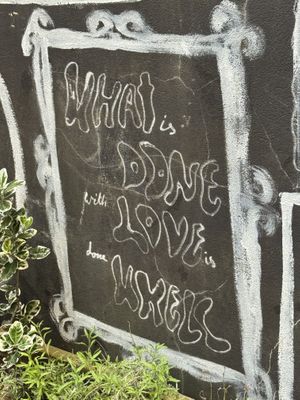 WHAT is
DONE
with
LOVE is
done
WHELL